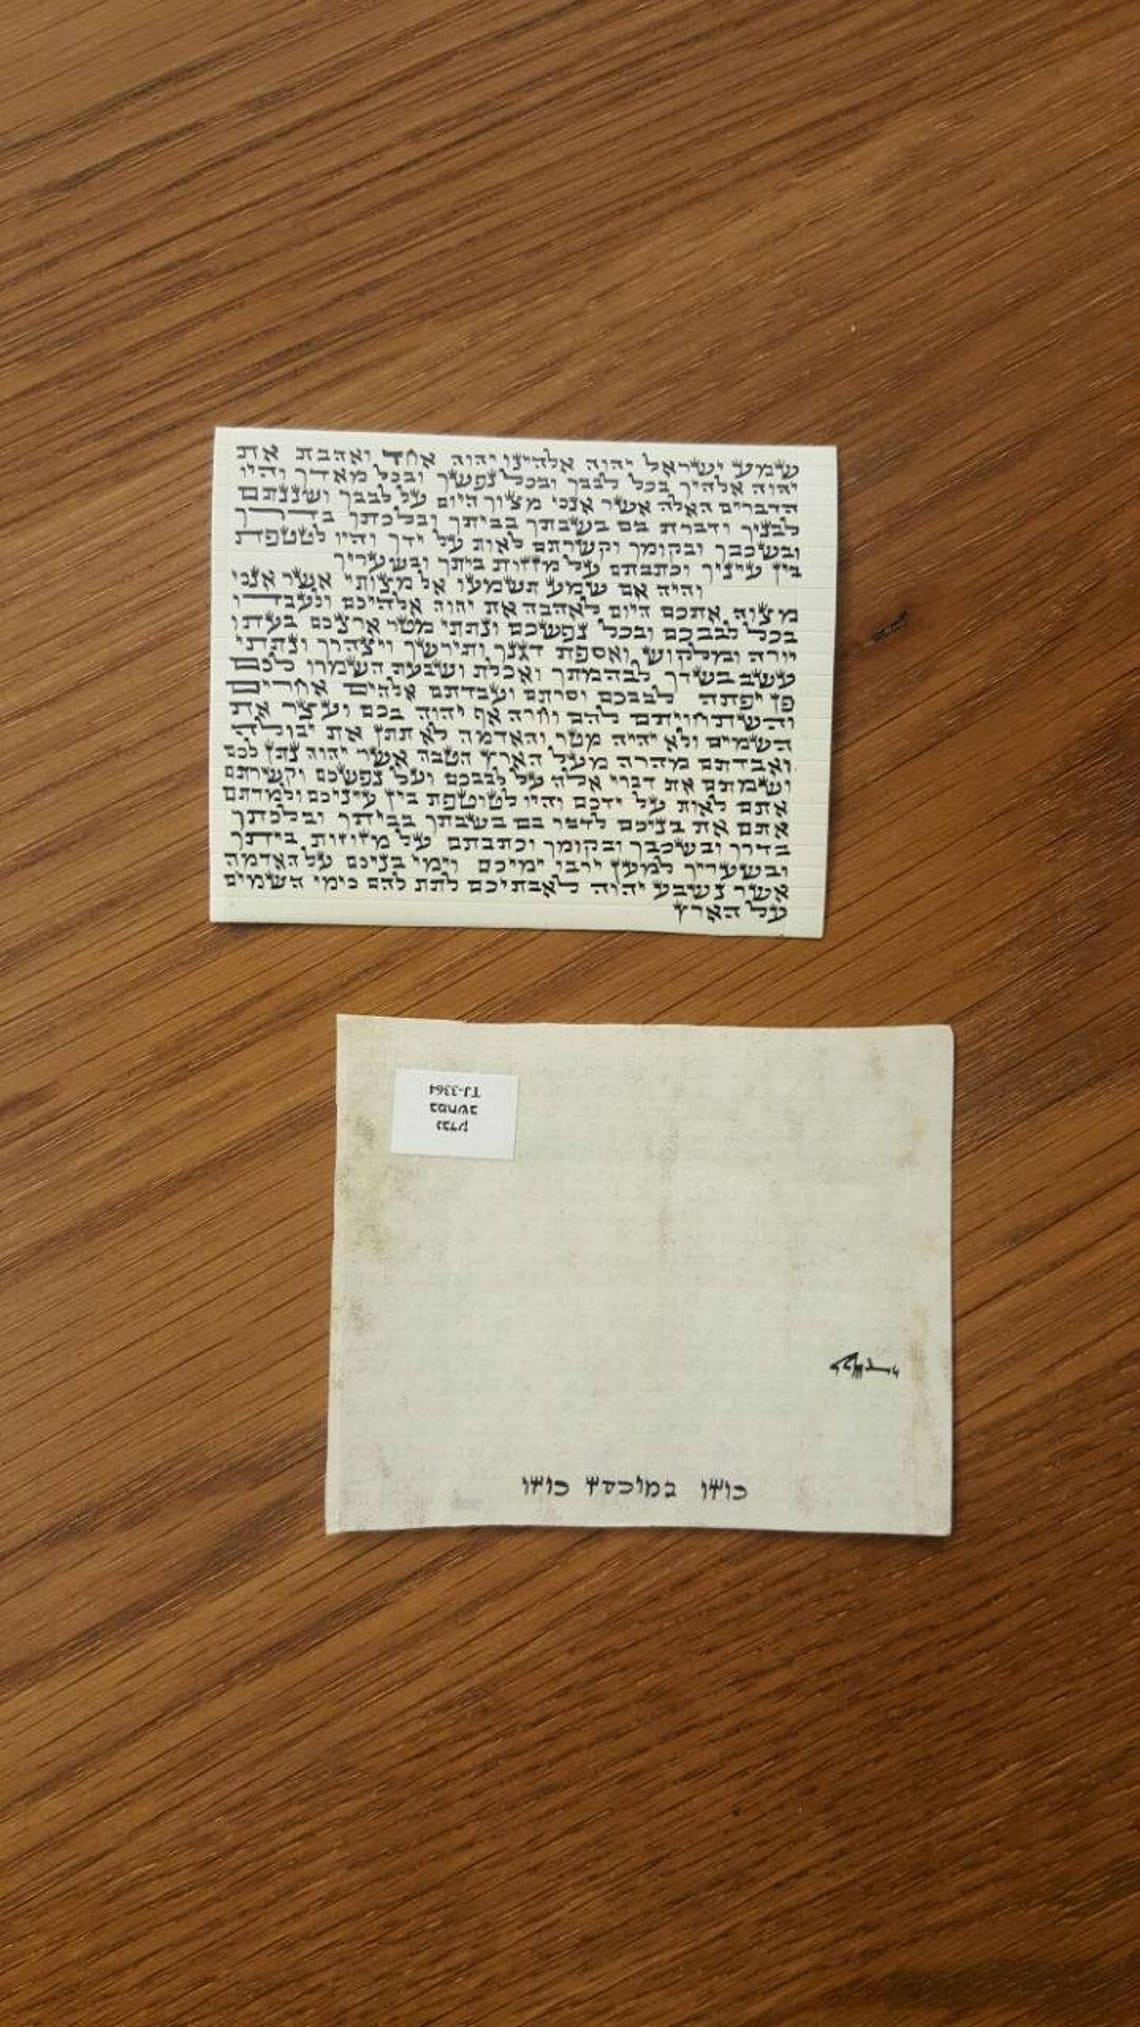 שמע ישראל יהוה אלהינו יהוה אחד ואהבת את
יהוה אלהיך בכל לבבך ובכל נפשך ובכל מאדך והיו
הדברים האלה אשר אנכי מצוך היום על לבבך ושננתם
לבניך ודברת בם בשבתך בביתך ובלכתך בדרך
ובשכבך ובקומך וקשרתם לאות על ידך והיו לטטפת
בין עיניך וכתבתם על מזזות ביתך ובשעריך
והיה אם שמע תשמעו אל מצותי אשר אנכי
מצוה אתכם היום לאהבה את יהוה אלהיכם ולעבדו
בכל לבבכם ובכל נפשכם ונתתי מטר ארצכם בעתו
יורה ומלקוש ואספת דגנך ותירשך ויצהרך ונתתי
עשב בשדך לבהמתך ואכלת ושבעת השמרו לכם
פן יפתה לבבכם וסרתם ועבדתם אלהים אחרים
והשתחויתם להם וחרה אף יהוה בכם ועצר את
השמים ולא יהיה מטר והאדמה לא תתן את יבולה
ואבדתם מהרה מעל הארץ הטבה אשר יהוה נתן לכם
ושמתם את דברי אלה על לבבכם ועל נפשכם וקשרתם
אתם לאות על ידכם והיו לטוטפת בין עיניכם ולמדתם
אתם את בניכם לדבר בם בשבתך בביתך ובלכתך
בדרך ובשכבך ובקומך וכתבתם על מזוזות ביתך
ובשעריך למען ירבו ימיכם וימי בניכם על האדמה
אשר נשבע יהוה לאבתיכם לתת להם כימי השמים
על הארץ
נבדק
במחשב
TJ-3364
שדי
כוזו במוכסז כוזו